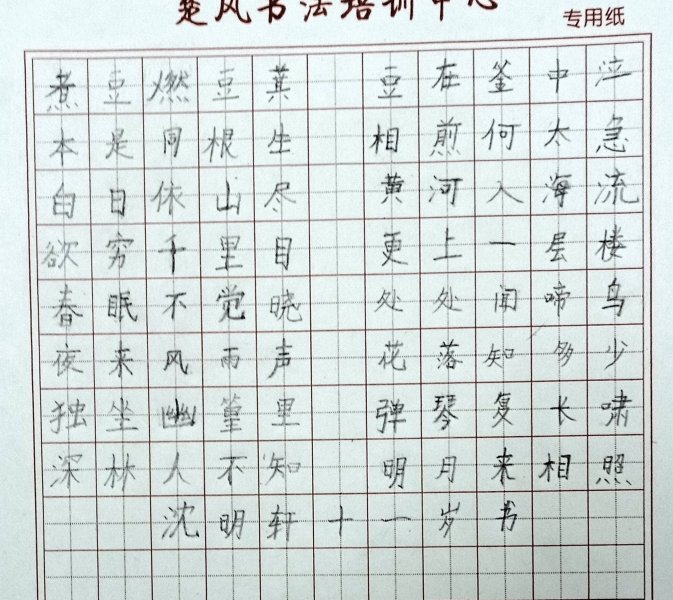 楚风书法培训中心
专用纸
煮豆燃豆萁 豆在釜中泣
本是同根生 相煎何太急
白日依山尽 黄河入海流
欲穷千里目 更上一层楼
春眠不觉晓 处处闻啼鸟
夜来风雨声 花落知多少
独坐幽篁里 弹琴复长啸
深林人不知 明月来相照
沈明轩十一岁书